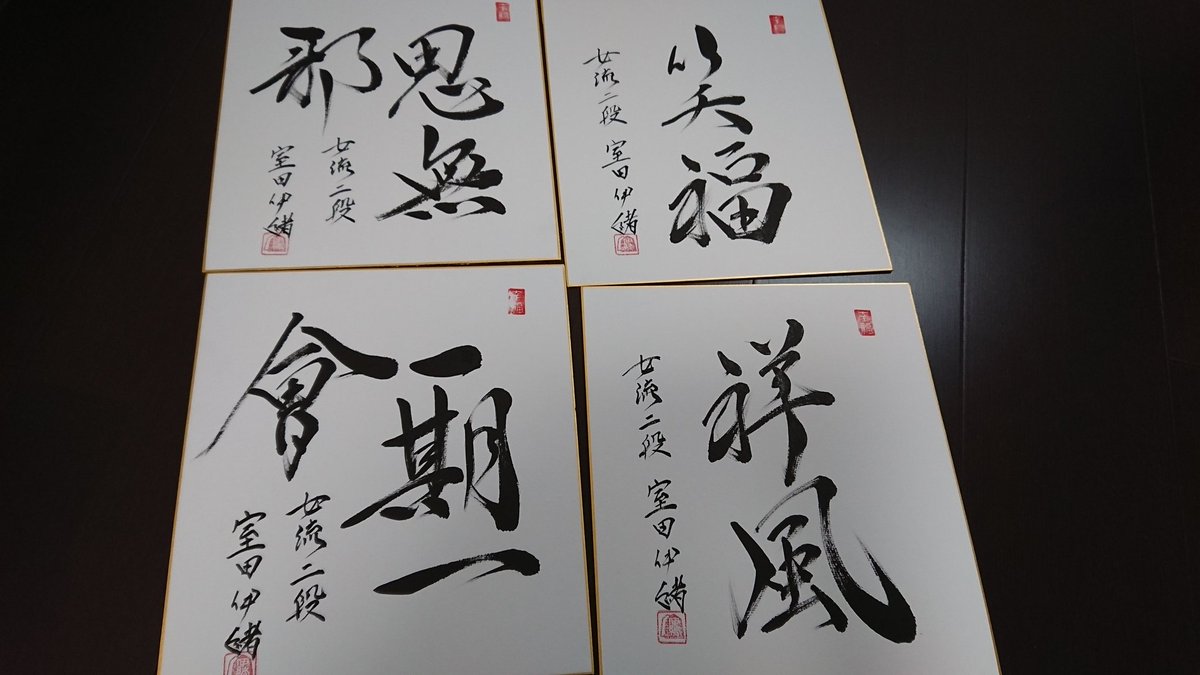 思無
邪
女流二段
室田伊緒
笑福
女流二段 室田伊緒
一期一
會
女流二段
室田伊緒
祥風
女流二段 室田伊緒